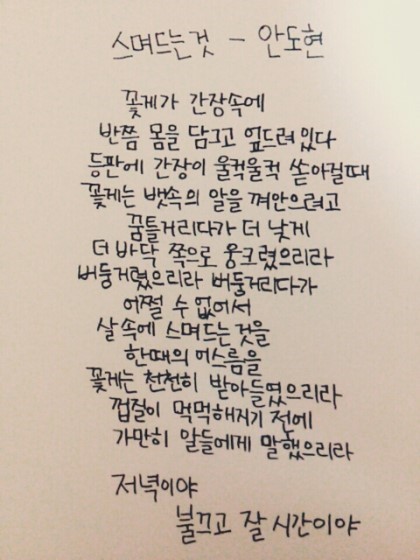 스며드는것 - 안도현
꽃게가 간장속에
반쯤 몸을 담그고 엎드려있다
등판에 간장이 울컥울컥 쏟아질때
꽃게는 뱃속의 알을 껴안으려고
꿈틀거리다가 더 낮게
더 바닥 쪽으로 웅크렸으리라
버둥거렸으리라 버둥거리다가
어쩔 수 없어서
살 속에 스며드는 것을
한때의 어스름을
꽃게는 천천히 받아들였으리라
껍질이 먹먹해지기 전에
가만히 알들에게 말했으리라
저녁이야
불끄고 잘 시간이야